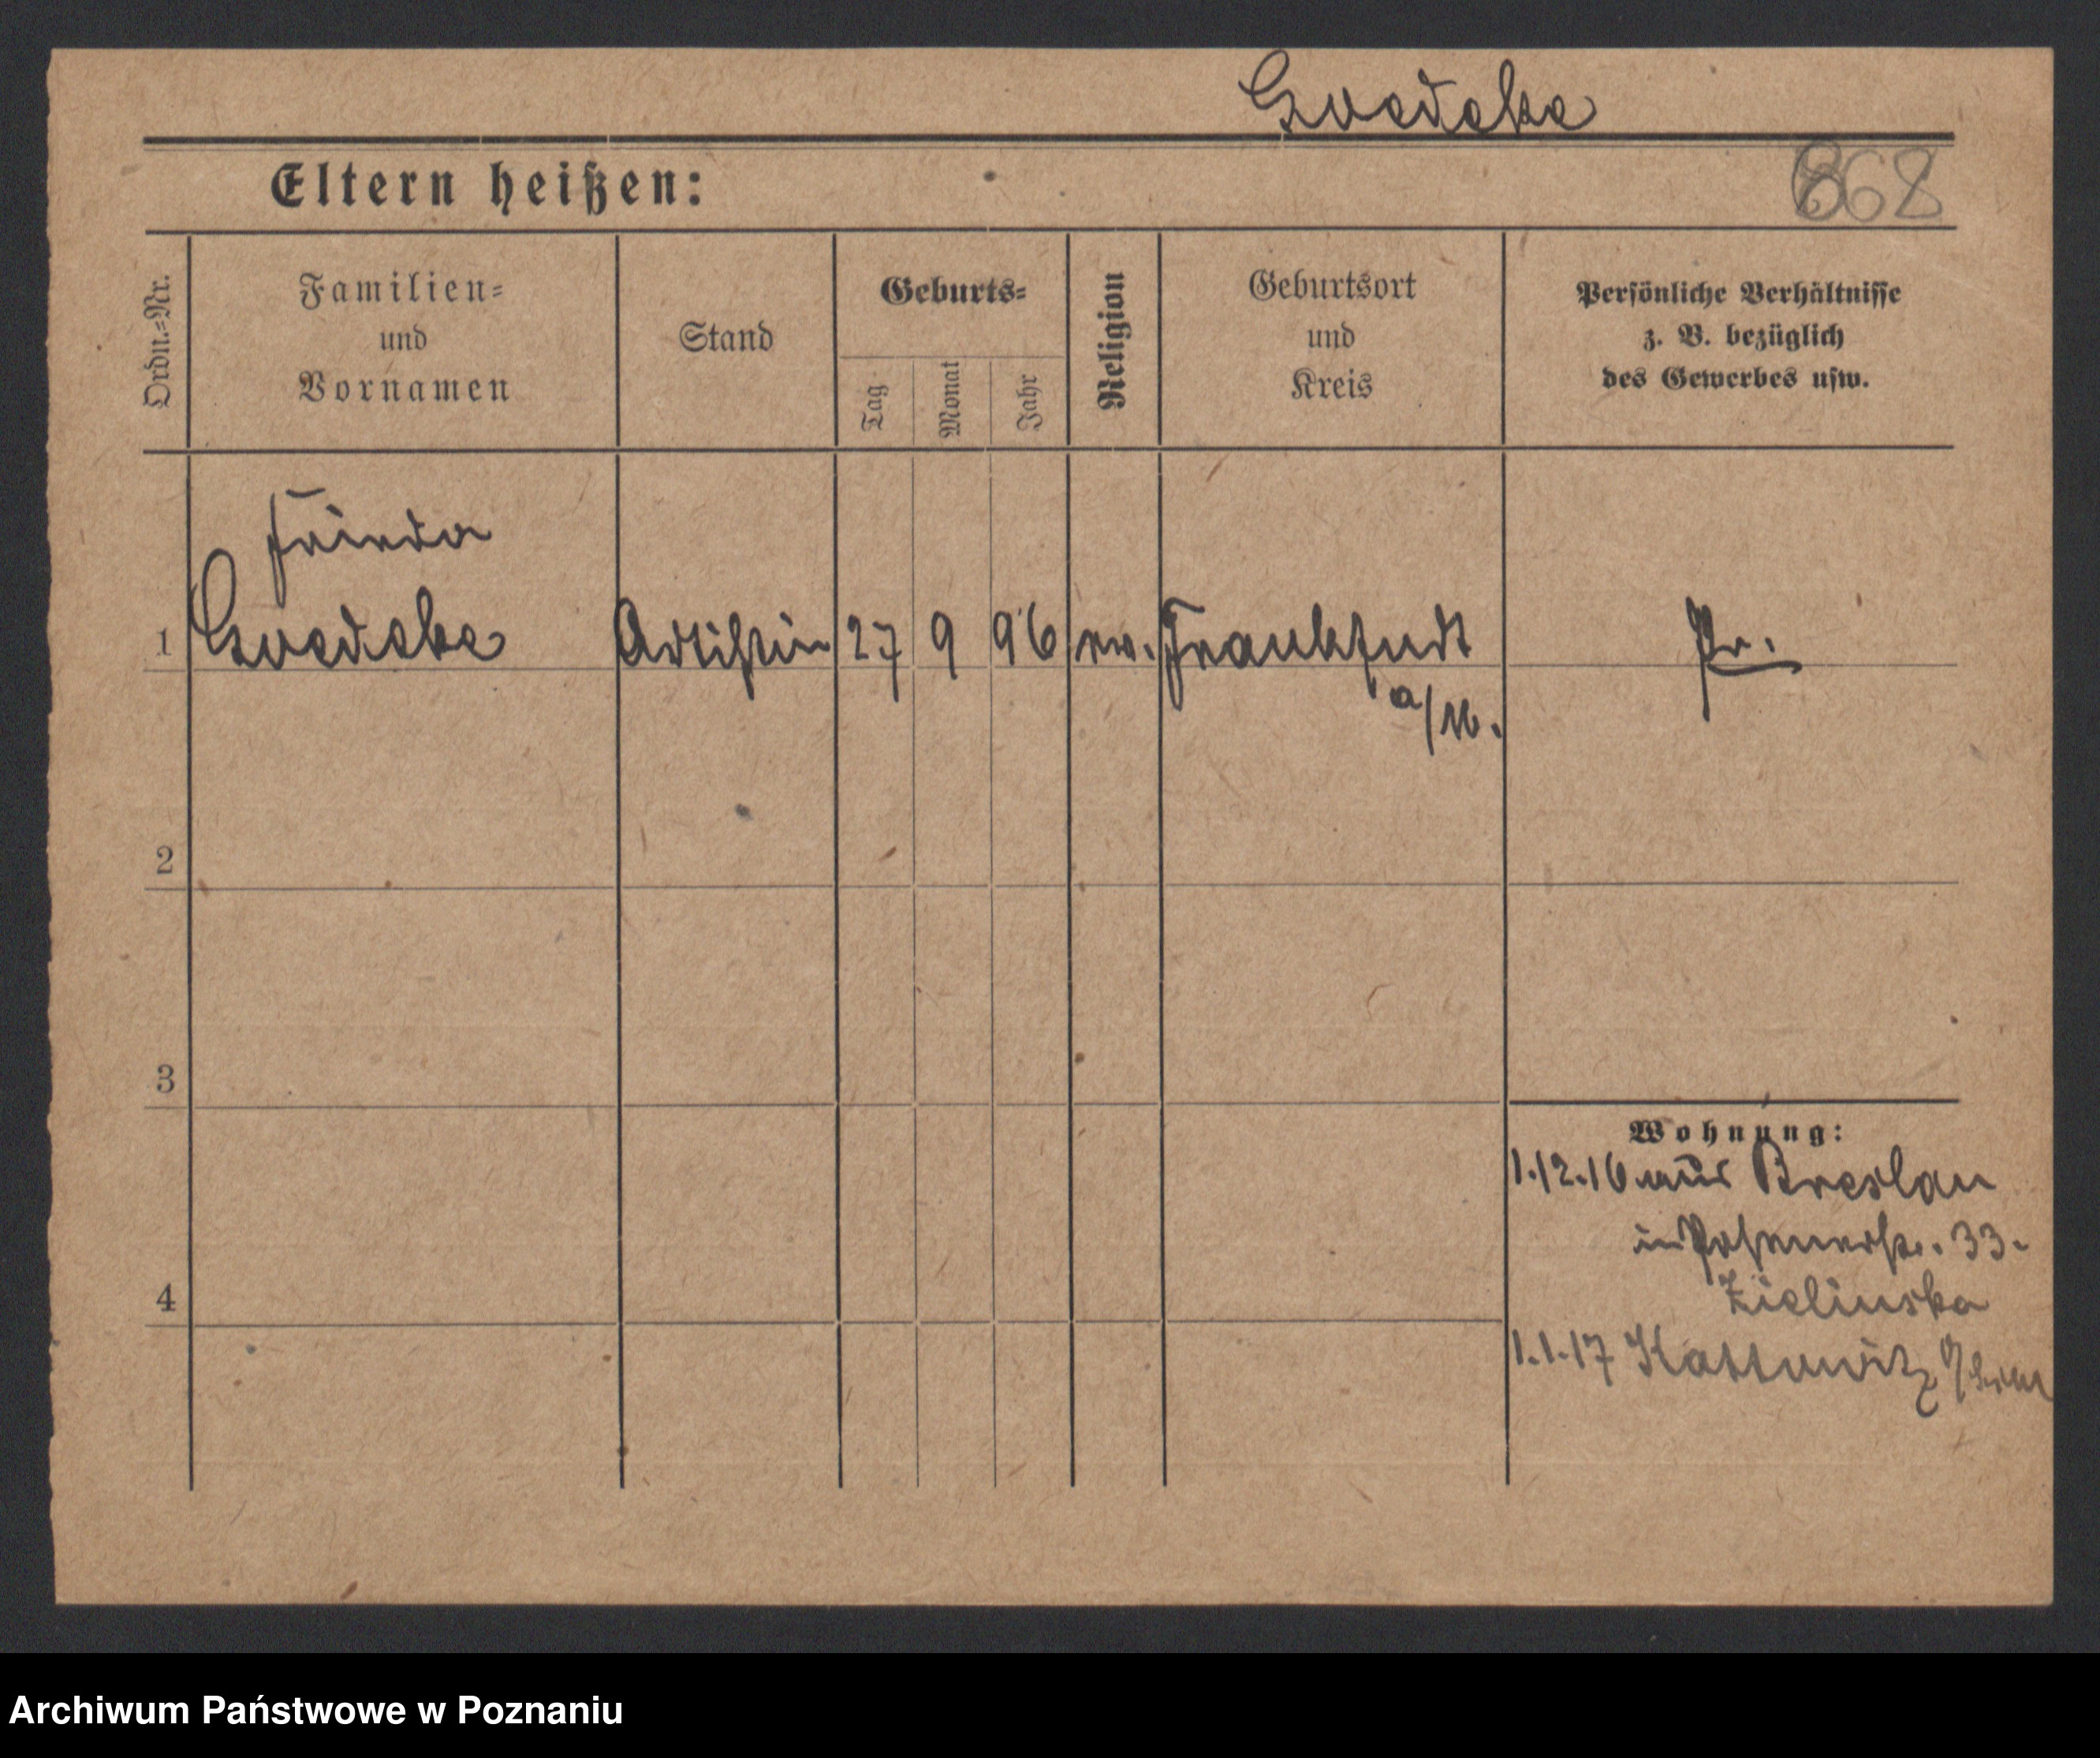 Goedecke
Eltern heißen:
868
Ordn.-Nr.
Familien-
und
Vornamen
Stand
Geburts-
Tag
Monat
Jahr
Religion
Geburtsort
und
Kreis
Persönliche Verhältnisse
z. B. bezüglich
des Gewerbes usw.
Frieda
1 Goedecke Artistin 27 9 96 ev. Frankfurt Pr.
a/M.
2
3
4
Wohnung:
1.12.16 aus Breslau
in Posenerstr. 33.
Zielinska
1.1.17 Kattowitz
Archiwum Państwowe w Poznaniu